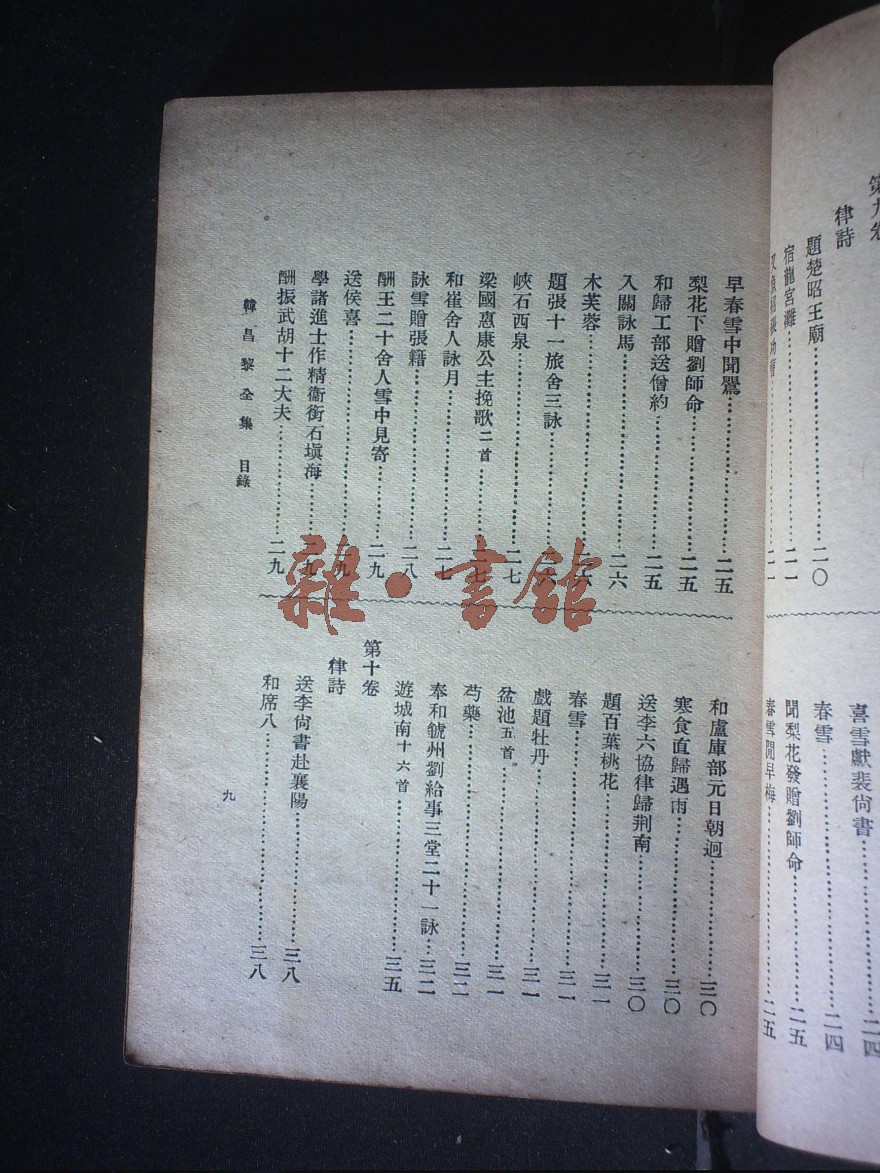 第九卷
律詩
題楚昭王廟……二〇
宿龍宮灘……二一
喜雪獻裴尙書……二四
春雪……二四
聞梨花發贈劉師命……二五
春雪間早梅……二五
早春雪中聞鶯……二五
梨花下贈劉師命……二五
和歸工部送僧約……二五
入關詠馬……二六
木芙蓉……二六
題張十一旅舍三詠……二六
峽石西泉……二七
梁國惠康公主挽歌二首……二七
和崔舍人詠月……二七
詠雪贈張籍……二八
酬王二十舍人雪中見寄……二九
送侯喜……二九
學諸進士作精衞銜石塡海……二九
酬振武胡十二大夫……二九
和盧庫部元日朝迴……三〇
寒食直歸遇雨……三〇
送李六協律歸荆南……三〇
題百葉桃花……三一
春雪……三一
戲題牡丹……三一
盆池五首……三一
芍藥……三二
奉和虢州劉給事三堂二十一詠……三二
遊城南十六首……三五
第十卷
律詩
送李尙書赴襄陽……三八
和席八……三八
韓昌黎全集 目錄
九
雜·書館